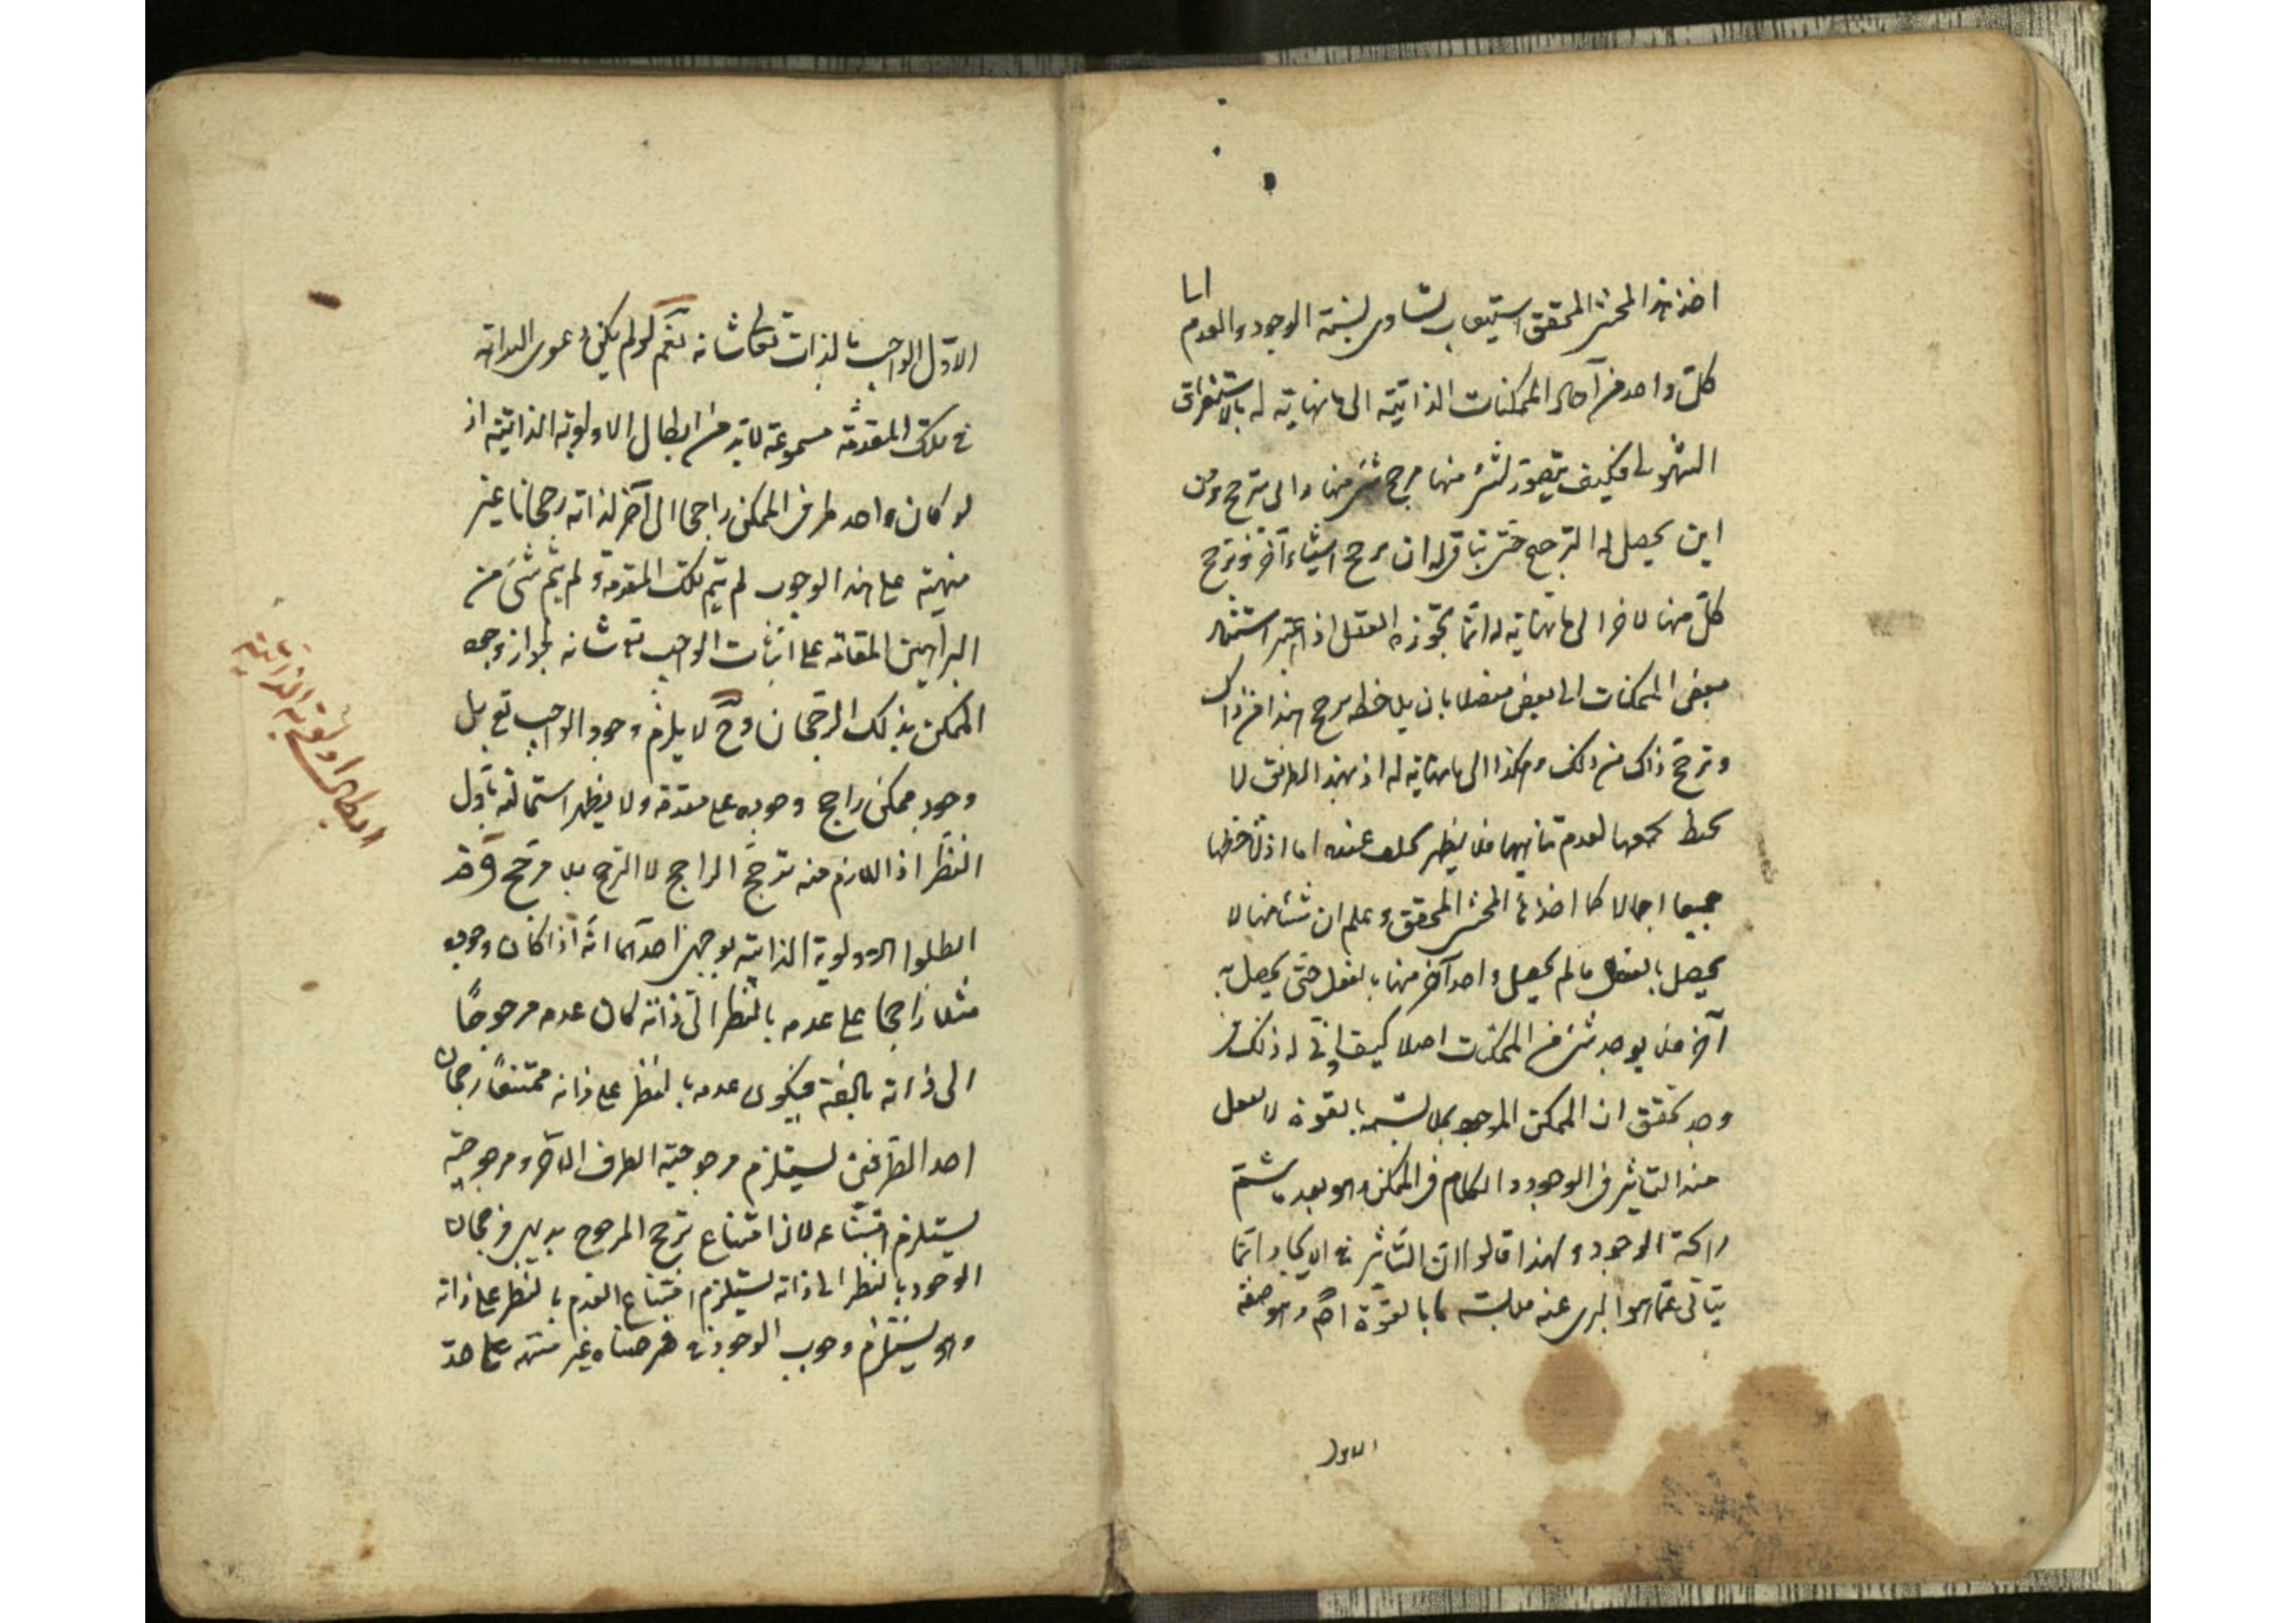 اخذ هذا المحشى المحقق استيعاب تساوى نسبة الوجود والعدم الى
كلّ واحد من آحاد الممكنات الذاتية الى ما نهاية له بالاستغراق
الشمولى فكيف يتصوّر لشئ منها مرجح شئ منها والى مترجح ومن
اين يحصل له الترجح حتى يتأتى له ان يرجح اشياء آخر وترجح
كلّ منها لآخر الى ما نهاية له انما يجوّزه العقل اذا اعتبر استناد
بعض الممكنات الى بعض مفصلا بان يلاحظ مرجح هذا من ذاك
وترجح ذاك من ذلك وهكذا الى ما نهاية له اذ بهذا الطريق لا
يحيط بجميعها لعدم تناهيها فلا يظهر عنده اما اذا لاحظها
جميعا اجمالا كما اخذ هذا المحشى المحقق وعلم ان شيئا منها لا
يحصل بالفعل ما لم يحصل واحد آخر منها بالفعل حتى يحصل به
آخر فلا يوجد شئ من الممكنات اصلا كيف له ذلك
وجد تحقق ان الممكن الموجود بملابسته بالقوة لا يعقل
منه التاثير فى الوجود والكلام فى الممكن وهو بعد ما شمّ
رائحة الوجود ولهذا قالوا ان التاثير فى الايجاد انما
يتأتى عمّا هو البرى عنه ملابسة ما بالقوّة اهـ وهو صفة
الاوّل
الاوّل الواجب بالذات تعالى شانه نعم لو لم يكن دعوى البداهة
فى تلك المقدمة مسموعة لابدّ من ابطال الاولوية الذاتية اذ
لو كان واحد طرفى الممكن راجحا الى آخر لذاته رجحانا غير
منتهية على هذا الوجوب لم يتم تلك المقدمة ولم يتم شئ من
البراهين المقامة على اثبات الواجب تع شانه لجواز وجود
الممكن بذلك الرجحان وح لا يلزم وجود الواجب تع بل
وجود ممكن راجح وجوده على عدمه ولا يظهر استحالته باوّل
النظر اذ اللازم منه ترجّح الراجح لا الترجح بلا مرجّح وقد
ابطلوا الاولوية الذاتية بوجهين احدهما انّه اذا كان وجوده
مثلا راجحا على عدمه بالنظر الى ذاته كان عدمه مرجوحًا
الى ذاته بالبتة فيكون عدمه بالنظر على ذاته ممتنعًا رجحان
احد الطرفين يستلزم مرجوحية الطرف الآخر ومرجوحيته
يستلزم امتناعه لان امتناع ترجح المرجوح بديهى فرجحان
الوجود بالنظر الى ذاته يستلزم امتناع العدم بالنظر على ذاته
وهو يستلزم وجوب الوجود فرضناه غير منته على حدّ
ابطال اولوية الذاتية